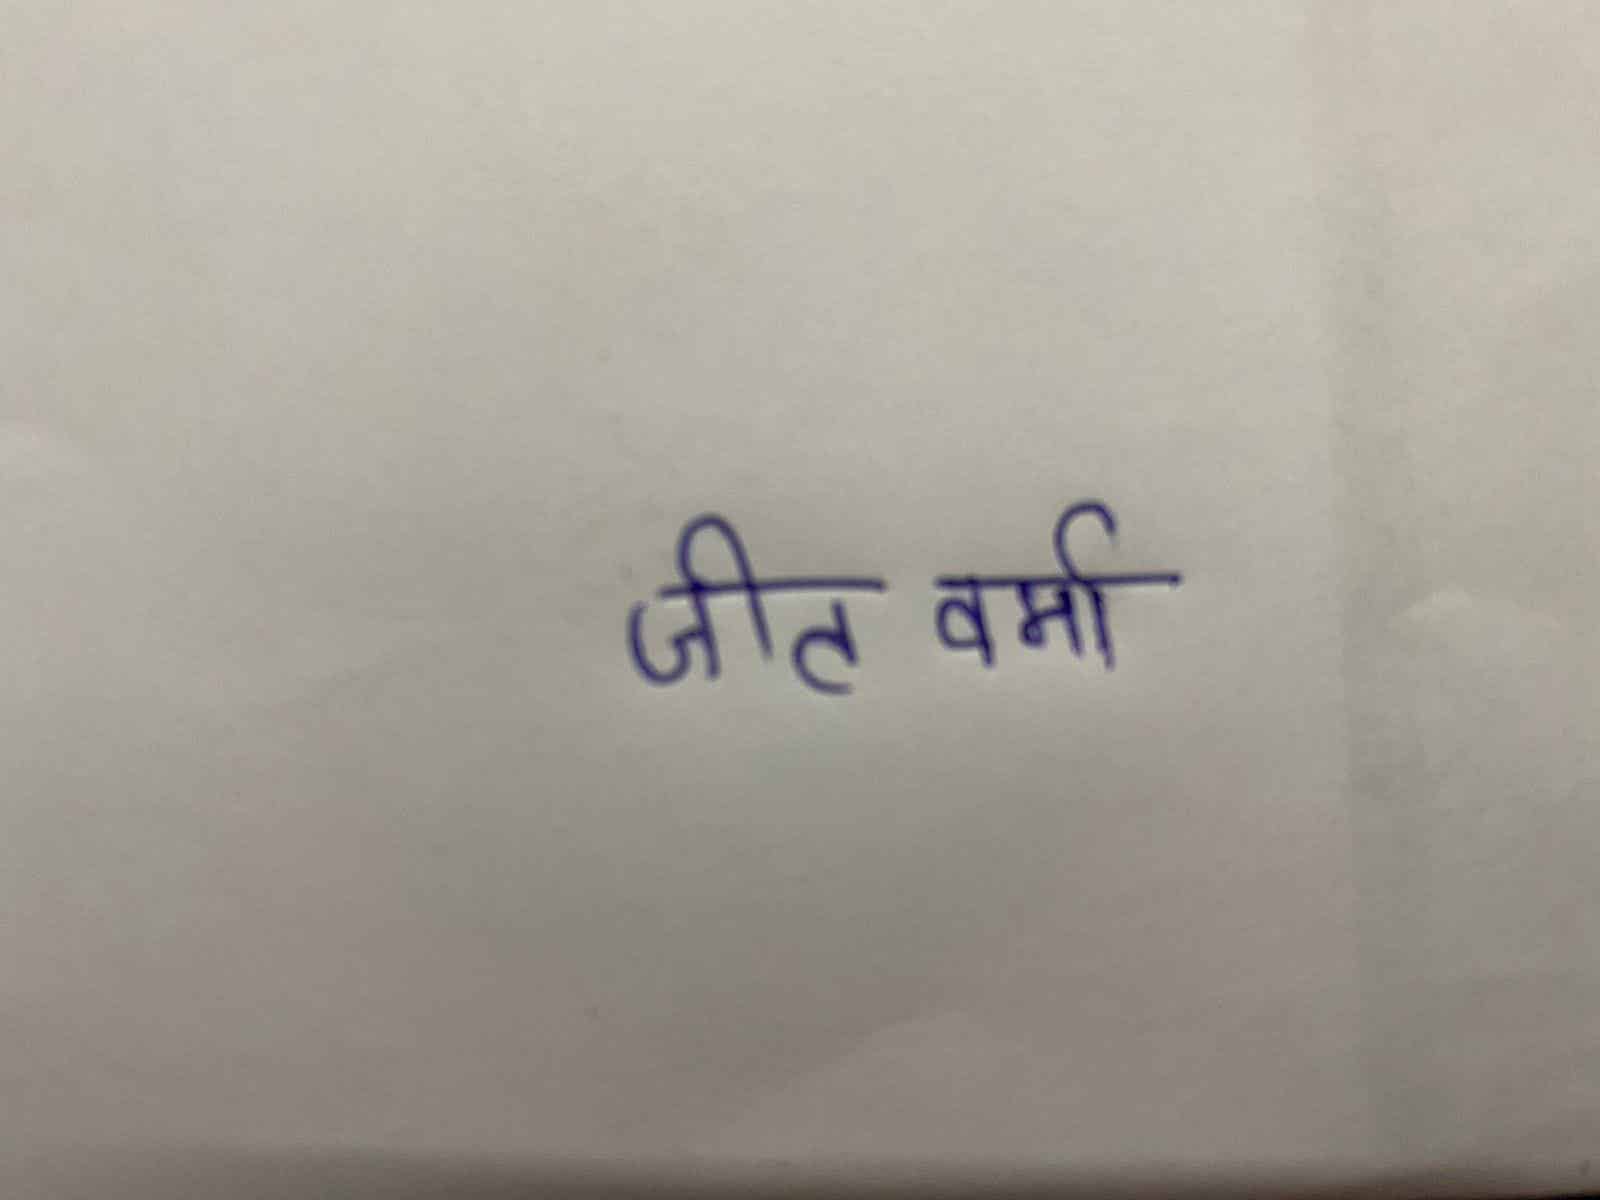 जीत वर्मा